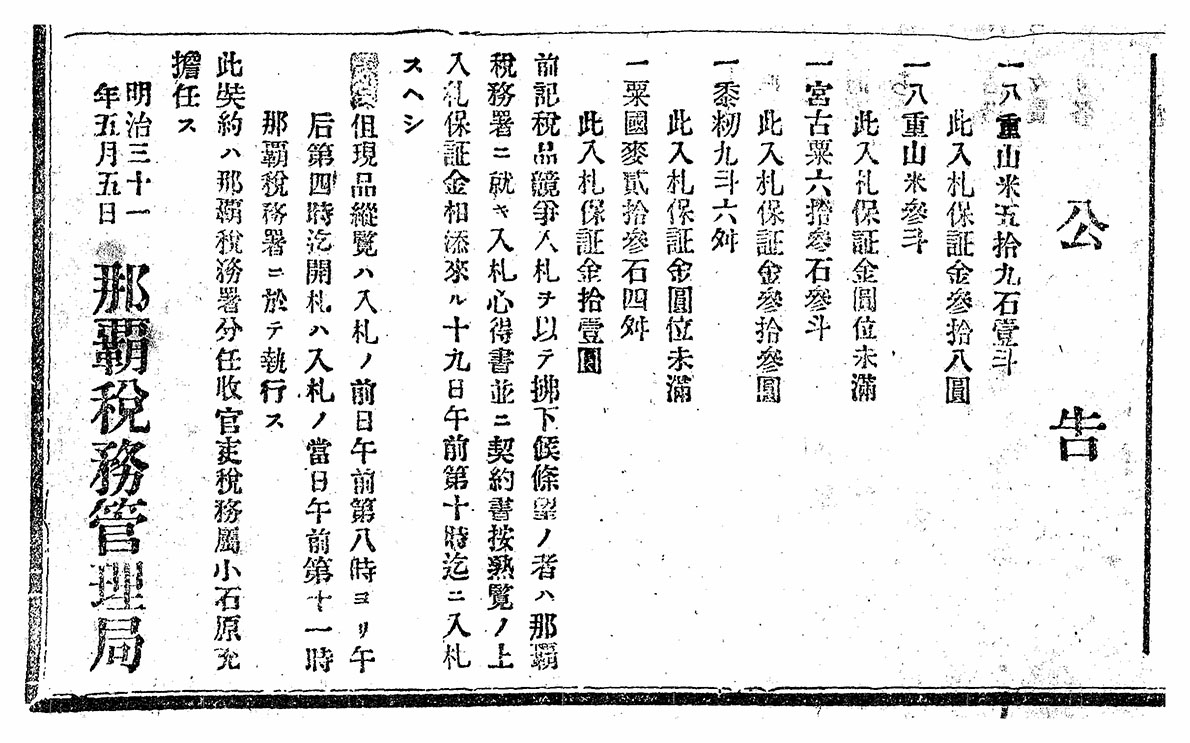 公告
一八重山米五拾九石壹斗
此入札保証金參拾八圓
一八重山米參斗
此入札保証金圓位未滿
一宮古粟六拾參石參斗
此入札保証金參拾參圓
一黍籾九斗六舛
此入札保証金圓位未滿
一粟國麥貳拾參石四舛
此入札保証金拾壹圓
前記稅品競爭入札ヲ以テ拂下候條望ノ者ハ那覇
稅務署ニ就キ入札心得書並ニ契約書按熟覽ノ上
入札保証金相添來ル十九日午前第十時迄ニ入札
スヘシ
但現品縱覽ハ入札ノ前日午前第八時ヨリ午
后第四時迄開札ハ入札ノ當日午前第十一時
那覇稅務署ニ於テ執行ス
此契約ハ那覇稅務署分任收官吏稅務屬小石原
擔任ス
明治三十一
年五月五日
那覇稅務管理局